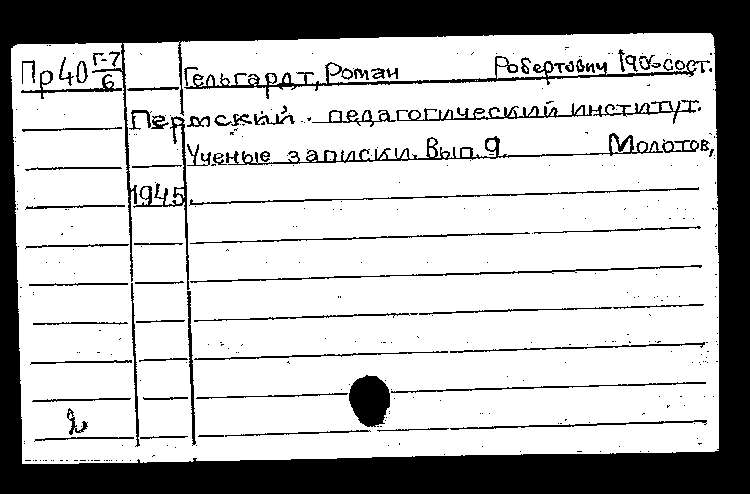 Пр40 Г-7/6 Гельгардт, Роман Робертович 1906 сост.
Пермский педагогический институт.
Ученые записки. Вып. 9. Молотов,
1945.